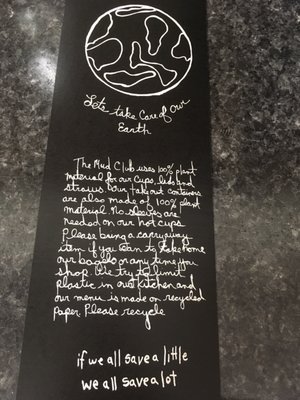 Let's take Care of Our
Earth
The Mud Club uses 100% plant
material for our Cups, lids and
straws. Our take out containers
are also made of 100% plant
material. No sleeves are
needed on our hot cups.
Please bring a carry away
item if you plan to take home
our bagels or any time you
shop. We try to limit
plastic in our kitchen and
our menu is made on recycled
paper. Please recycle
if we all save a little
we all save a lot